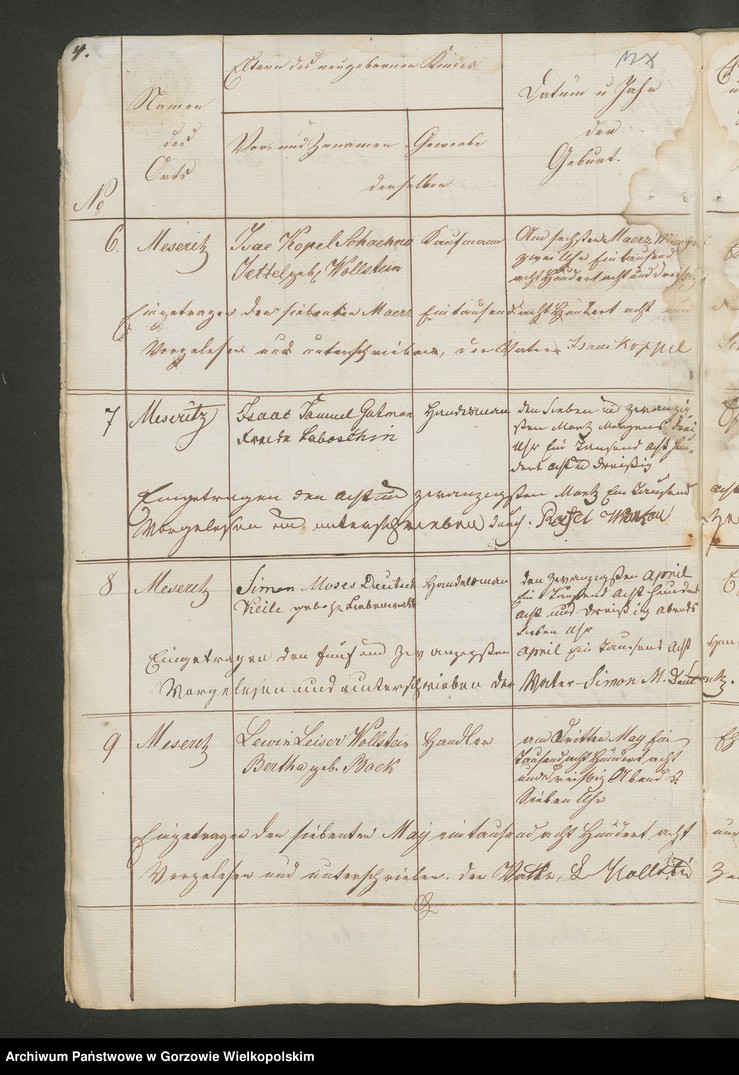 4.
Eltern des neugebornen Kindes
Namen
des
Orts
Datum u Jahr
der
Geburt.
Vor und Zunamen
Gewerbe
derselben
No
6. Meseritz
Isac Kopel Schachno
Jettel geb. Wollstein
Kaufmann
Am sechsten Maerz
zwei Uhr Ein tausend
acht Hundert acht und
Eingetragen den siebenten Maerz Eintausend acht Hundert acht und
Vorgelesen und unterschrieben, der Vater Isaac Koppel
7 Meseritz
Isaac Samuel Gutman
Laboschin
Handelsman
den Sieben und zwanzig
sten Martz Morgens drei
Uhr Ein Tausend Acht Hun-
dert Acht u dreißig
Eingetragen den Acht und zwanzigsten Martz Ein Tausend
Vorgelesen und unterschrieben durch.
8 Meseritz
Simon Moses
Handelsman
den zwanzigsten April
Ein Tausend Acht Hundert
Acht und dreißig abends
Sieben Uhr
Eingetragen den fünf und zwanzigsten April Ein Tausend Acht
Vorgelesen und unterschrieben der Vater Simon M.
9 Meseritz
Lewin Leiser Wollstein
Bertha geb. Bock
Handler
am Dritten May Ein
Tausend acht Hundert acht
und dreißig Abend
Sieben Uhr
Eingetragen den siebenten May ein tausend acht Hundert acht
Vorgelesen und unterschrieben. der Vater, L Wollstein
Archiwum Państwowe w Gorzowie Wielkopolskim